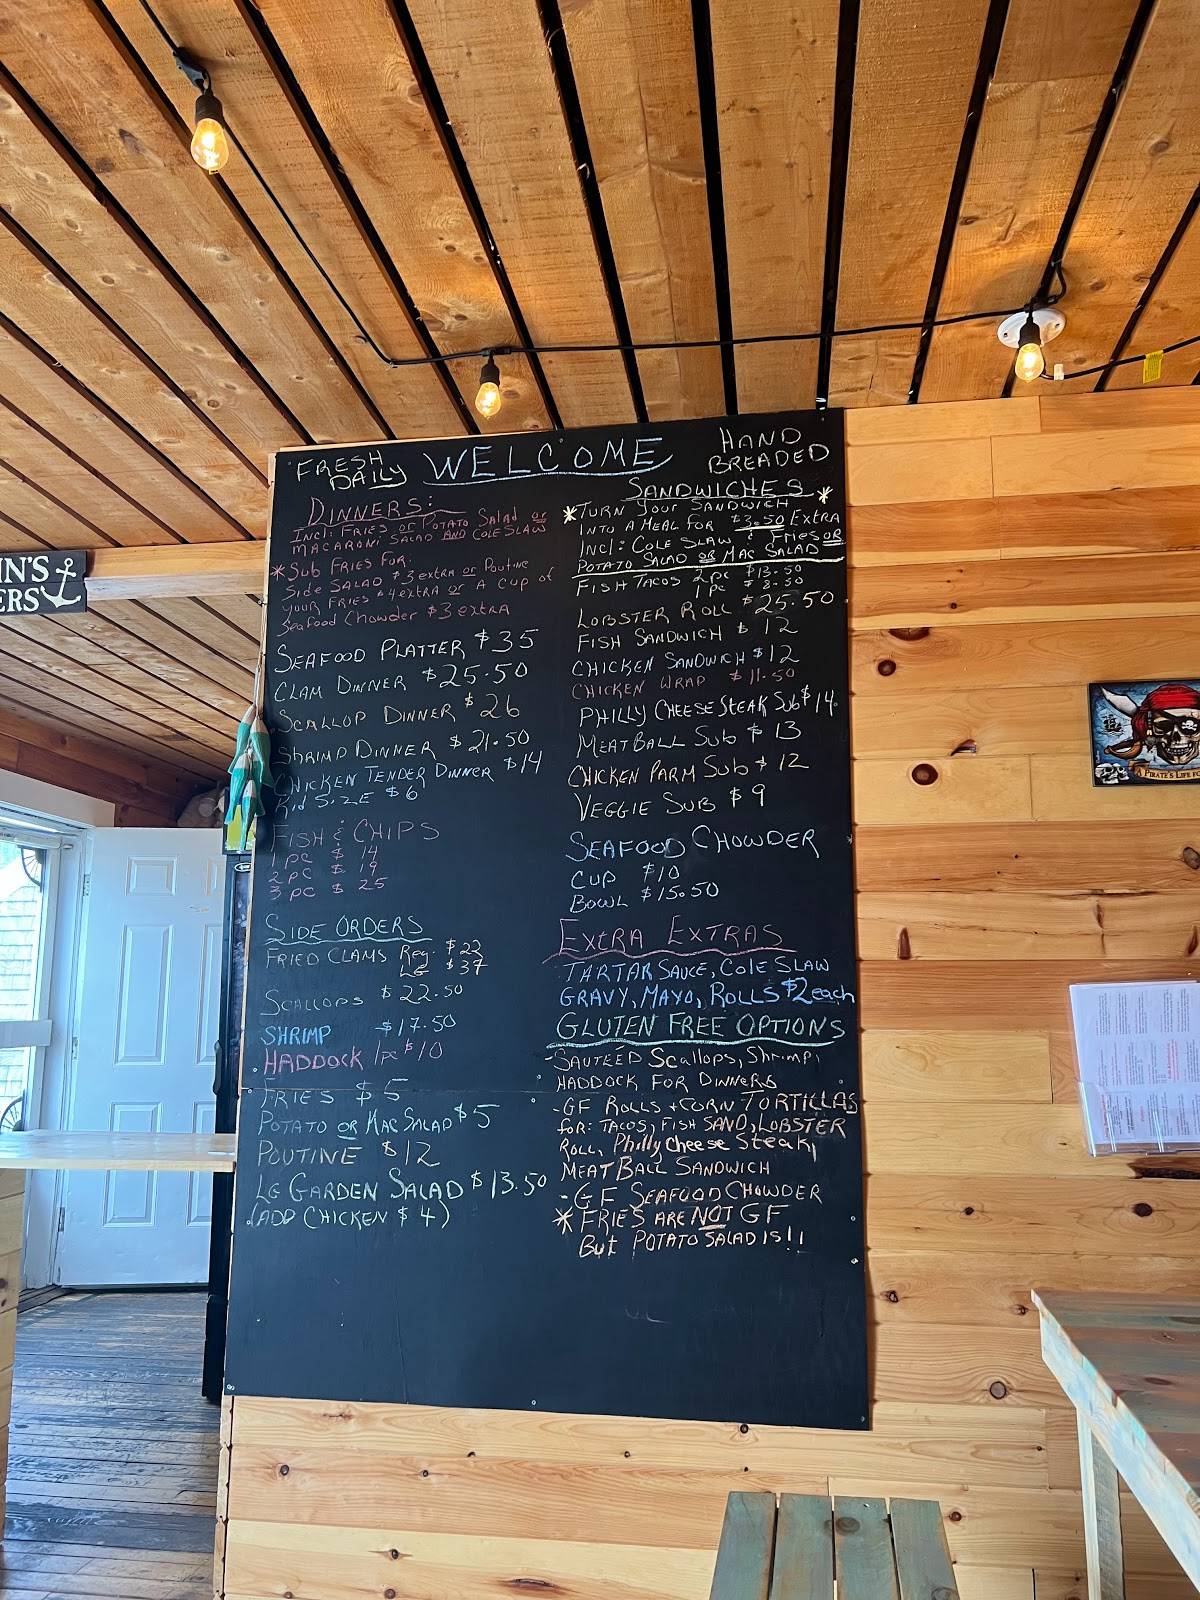 FRESH
DAILY
WELCOME
HAND
BREADED
DINNERS:
INCL: FRIES or POTATO Salad or
MACARONI SALAD AND COLE SLAW
* SUB FRIES FOR:
Side SALAD $3 extra or Poutine
your FRIES $4 extra or A cup of
Seafood Chowder $3 extra
SEAFOOD PLATTER $35
CLAM DINNER $25.50
SCALLOP DINNER $26
SHRIMP DINNER $21.50
CHICKEN TENDER DINNER $14
Kid SIZE $6
FISH & CHIPS
1 pc $14
2 pc $19
3 pc $25
SIDE ORDERS
FRIED CLAMS Reg. $22
LG $37
SCALLOPS $22.50
SHRIMP $17.50
HADDOCK 1pc $10
FRIES $5
POTATO or MAC SALAD $5
POUTINE $12
LG GARDEN SALAD $13.50
(ADD CHICKEN $4)
SANDWICHES *
* TURN your SANDWICH
INTO A MEAL FOR $3.50 Extra
INCL: COLE SLAW & Fries OR
POTATO SALAD OR MAC SALAD
FISH TACOS 2 pc $13.50
1 pc $8.50
LOBSTER ROLL $25.50
FISH SANDWICH $12
CHICKEN SANDWICH $12
CHICKEN WRAP $11.50
PHILLY CHEESE STEAK Sub $14.
MEATBALL SUB $13
CHICKEN PARM SUB $12
VEGGIE SUB $9
SEAFOOD CHOWDER
CUP $10
BOWL $15.50
EXTRA EXTRAS
TARTAR SAUCE, COLE SLAW
GRAVY, MAYO, ROLLS $2 each
GLUTEN FREE OPTIONS
-SAUTEED Scallops, Shrimp,
HADDOCK FOR DINNERS
-GF ROLLS + CORN TORTILLAS
for: TACOS, FISH SAND, LOBSTER
ROLL, Philly Cheese Steak,
MEATBALL SANDWICH
-GF SEAFOOD CHOWDER
* FRIES ARE NOT GF
But POTATO SALAD IS!!
IN'S
ERS
A PIRATE'S LIFE FO